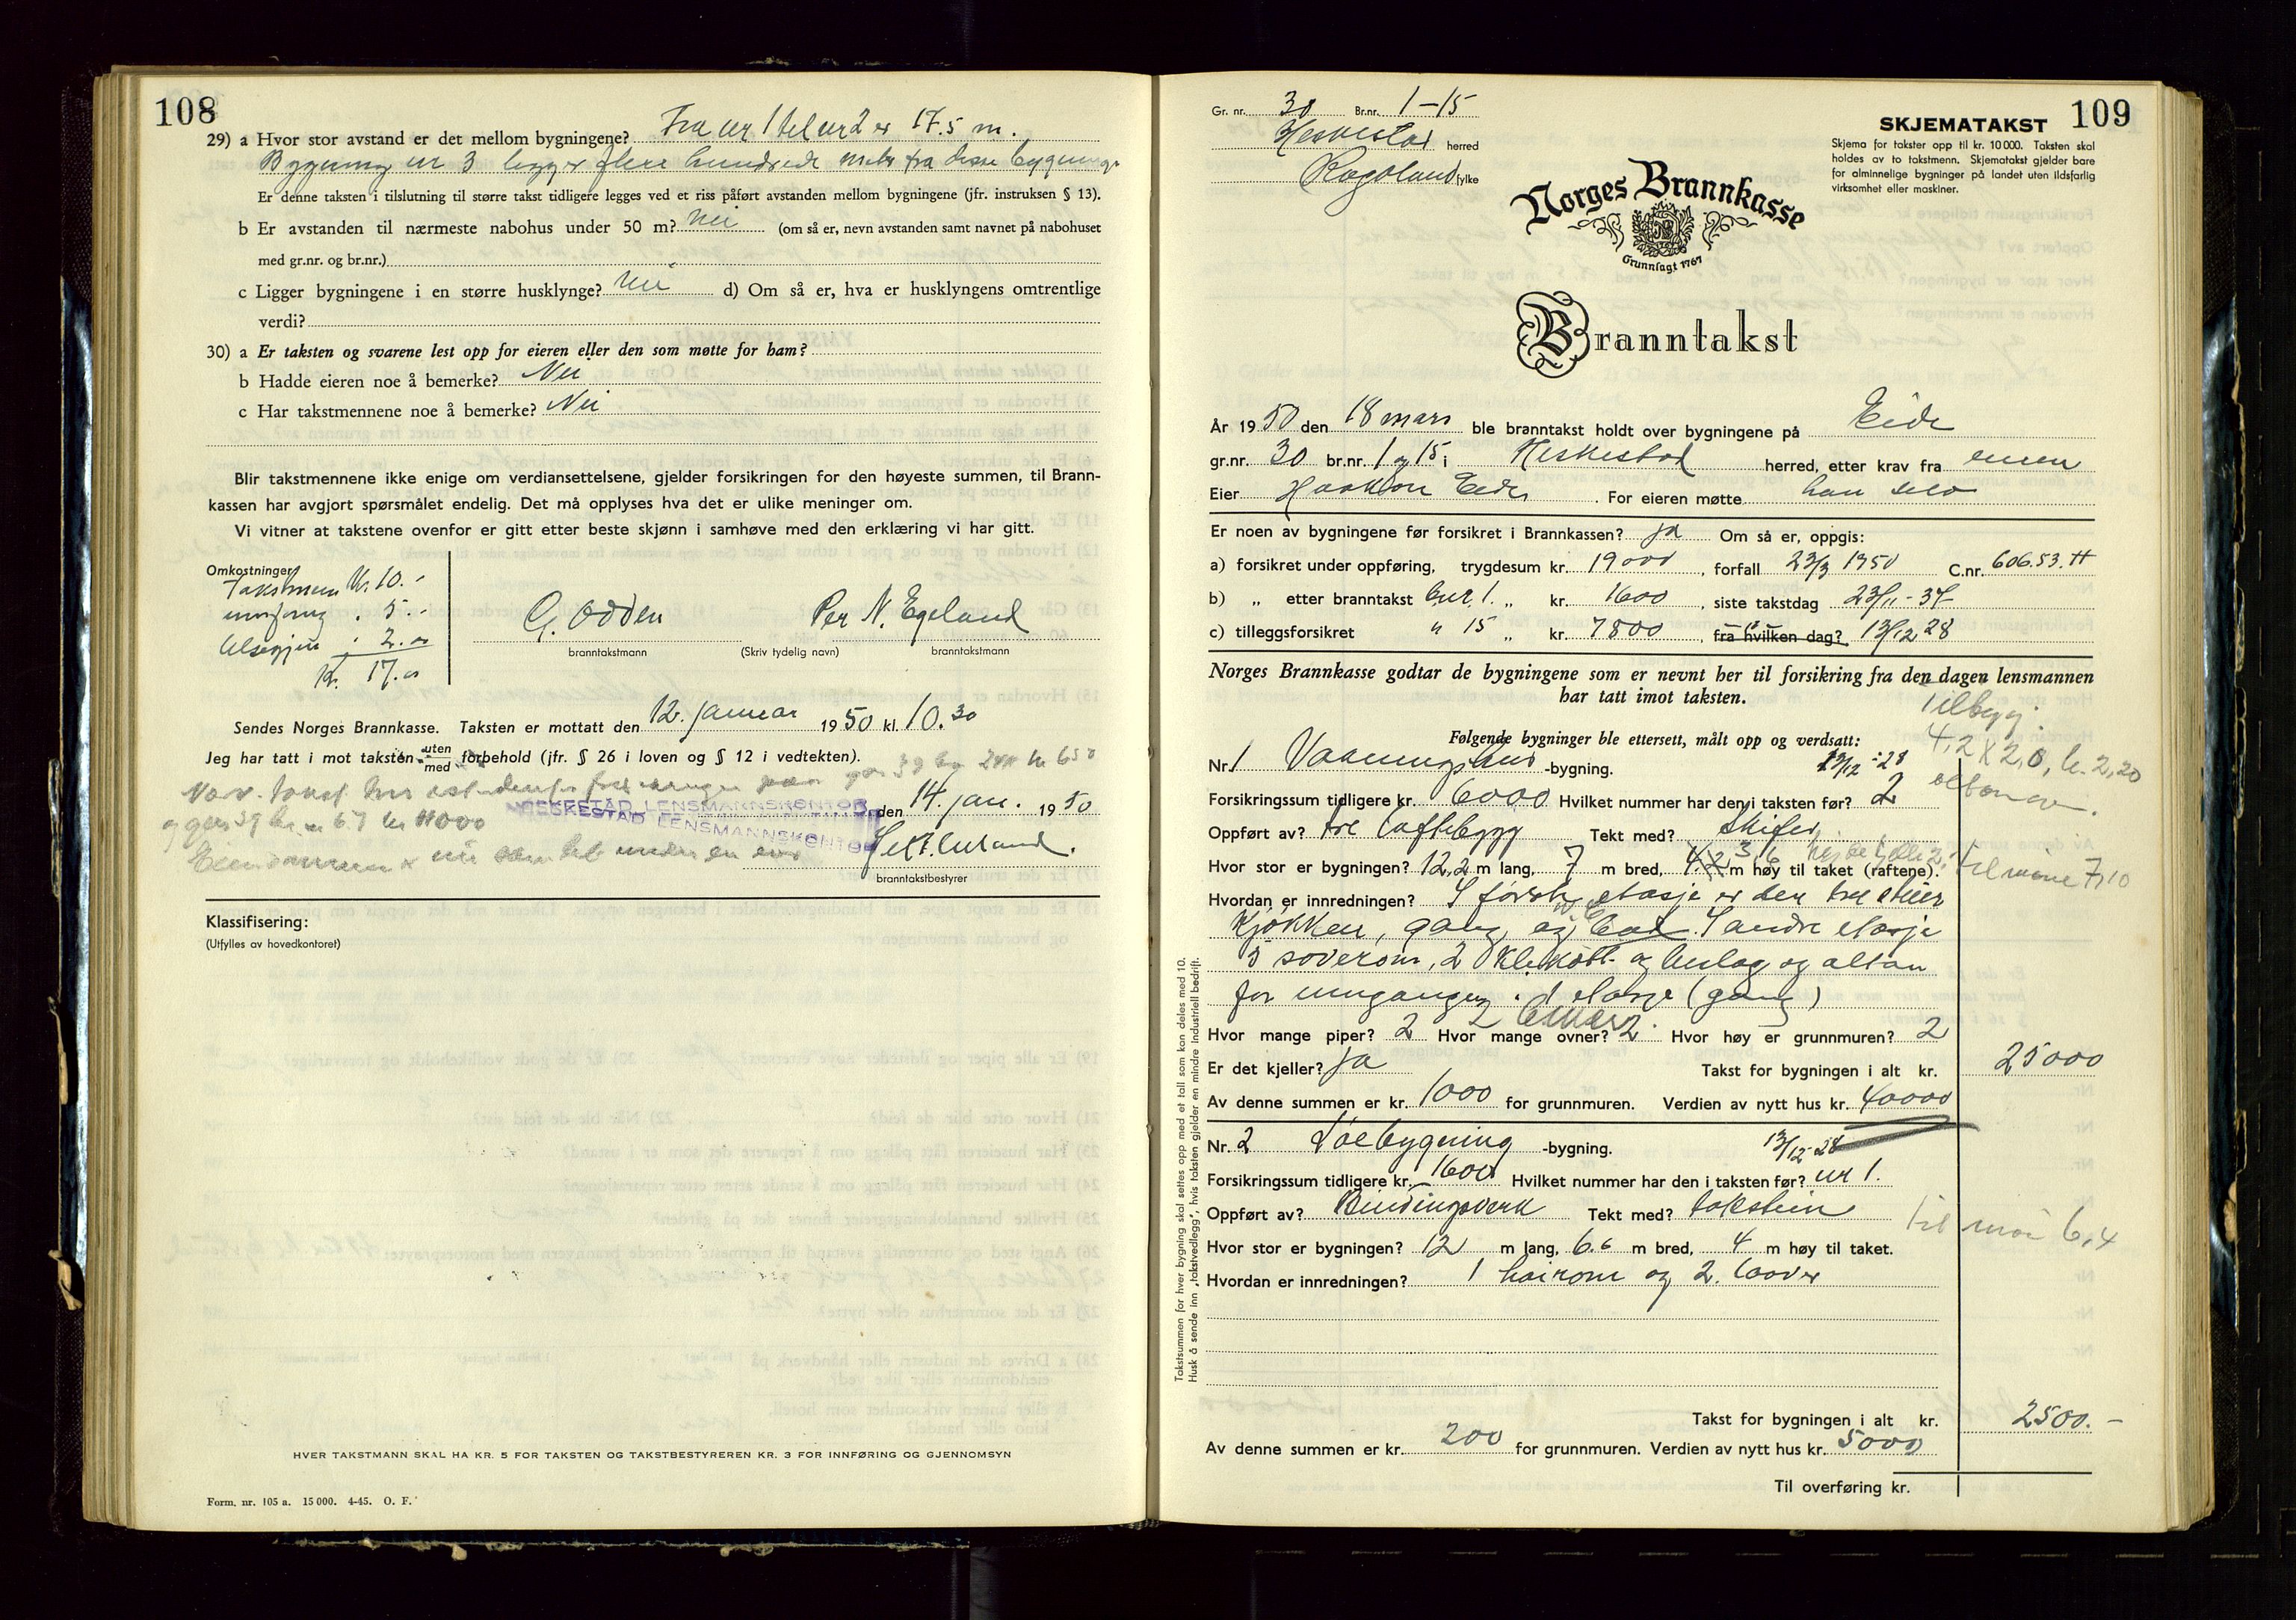 108
29) a Hvor stor avstand er det mellom bygningene? Fra nr 1 til nr 2 er 17.5 m.
Bygning nr 3 ligger flere hundrede meter fra disse bygninger
Er denne taksten i tilslutning til større takst tidligere legges ved et riss påført avstanden mellom bygningene (jfr. instruksen § 13).
b Er avstanden til nærmeste nabohus under 50 m? nei (om så er, nevn avstanden samt navnet på nabohuset
med gr.nr. og br.nr.)
c Ligger bygningene i en større husklynge? nei d) Om så er, hva er husklyngens omtrentlige
verdi?
30) a Er taksten og svarene lest opp for eieren eller den som møtte for ham?
b Hadde eieren noe å bemerke? Nei
c Har takstmennene noe å bemerke? Nei
Blir takstmennene ikke enige om verdiansettelsene, gjelder forsikringen for den høyeste summen, til Brann-
kassen har avgjort spørsmålet endelig. Det må opplyses hva det er ulike meninger om.
Vi vitner at takstene ovenfor er gitt etter beste skjønn i samhøve med den erklæring vi har gitt.
Omkostninger
Takstmenn kr. 10.-
5.-
2.00
kr. 17.00
G. Odden Per N. Egeland
branntakstmann (Skriv tydelig navn) branntakstmann
Sendes Norges Brannkasse. Taksten er mottatt den 12. januar 1950 kl. 10.30
Jeg har tatt i mot taksten uten/med forbehold (jfr. § 26 i loven og § 12 i vedtekten).
HESKESTAD LENSMANNSKONTOR
HESKESTAD LENSMANNSKONTOR
, den 14. jan. 1950
branntakstbestyrer
Klassifisering:
(Utfylles av hovedkontoret)
HVER TAKSTMANN SKAL HA KR. 5 FOR TAKSTEN OG TAKSTBESTYREREN KR. 3 FOR INNFØRING OG GJENNOMSYN
Form. nr. 105 a. 15 000. 4-45. O. F.
109
Gr. nr. 30 Br.nr. 1-15
Heskestad herred
Rogaland fylke
SKJEMATAKST
Skjema for takster opp til kr. 10 000. Taksten skal
holdes av to takstmenn. Skjematakst gjelder bare
for alminnelige bygninger på landet uten ildsfarlig
virksomhet eller maskiner.
Norges Brannkasse
Grunnlagt 1767
Branntakst
År 1950 den 18 mars ble branntakst holdt over bygningene på Eide
gr.nr. 30 br.nr. 1 og 15 i Heskestad herred, etter krav fra eieren
Eier Haakon Eide. For eieren møtte han selv
Er noen av bygningene før forsikret i Brannkassen? ja Om så er, oppgis:
a) forsikret under oppføring, trygdesum kr. 19000, forfall 23/3 1950 C.nr. 606.53. H
b) „ etter branntakst b.nr. 1. „ kr. 1600, siste takstdag 23/11-37
c) tilleggsforsikret " 15 „ kr. 7800, fra hvilken dag? 13/12 28
Norges Brannkasse godtar de bygningene som er nevnt her til forsikring fra den dagen lensmannen
har tatt imot taksten.
Tilbygg.
4,2 X 2,0, h. 2,20
Følgende bygninger ble ettersett, målt opp og verdsatt:
Nr. 1 Vaaningshus -bygning. 13/12 -28
Forsikringssum tidligere kr. 6000 Hvilket nummer har den i taksten før? 2
Oppført av? tre laftebygg Tekt med? Skifer
Hvor stor er bygningen? 12,2 m lang, 7 m bred, 4.2 m høy til taket (raftene). til møne 7,10
Hvordan er innredningen? I første etasje er der tre stuer
Kjøkken, gang og bad. I andre etasje
5 soverom, 2 kleskott og beslag og altan
for inngangen. 1 etasje (gang)
Hvor mange piper? 2 Hvor mange ovner? 2. Hvor høy er grunnmuren? 2
Er det kjeller? ja Takst for bygningen i alt kr. 25000
Av denne summen er kr. 1000 for grunnmuren. Verdien av nytt hus kr. 40000
Nr. 2 Løebygning -bygning. 13/12-28
Forsikringssum tidligere kr. 1600 Hvilket nummer har den i taksten før? nr 1.
Oppført av? Bindingsverk Tekt med? takstein
Hvor stor er bygningen? 12 m lang, 6.6 m bred, 4 m høy til taket. til møn 6,4
Hvordan er innredningen? 1 høirom og 2.
Takst for bygningen i alt kr. 2500.-
Av denne summen er kr. 200 for grunnmuren. Verdien av nytt hus kr. 5000
Til overføring kr.
Takstsummen for hver bygning skal settes opp med et tall som kan deles med 10.
Husk å sende inn „takstvedlegg", hvis taksten gjelder en mindre industriell bedrift.